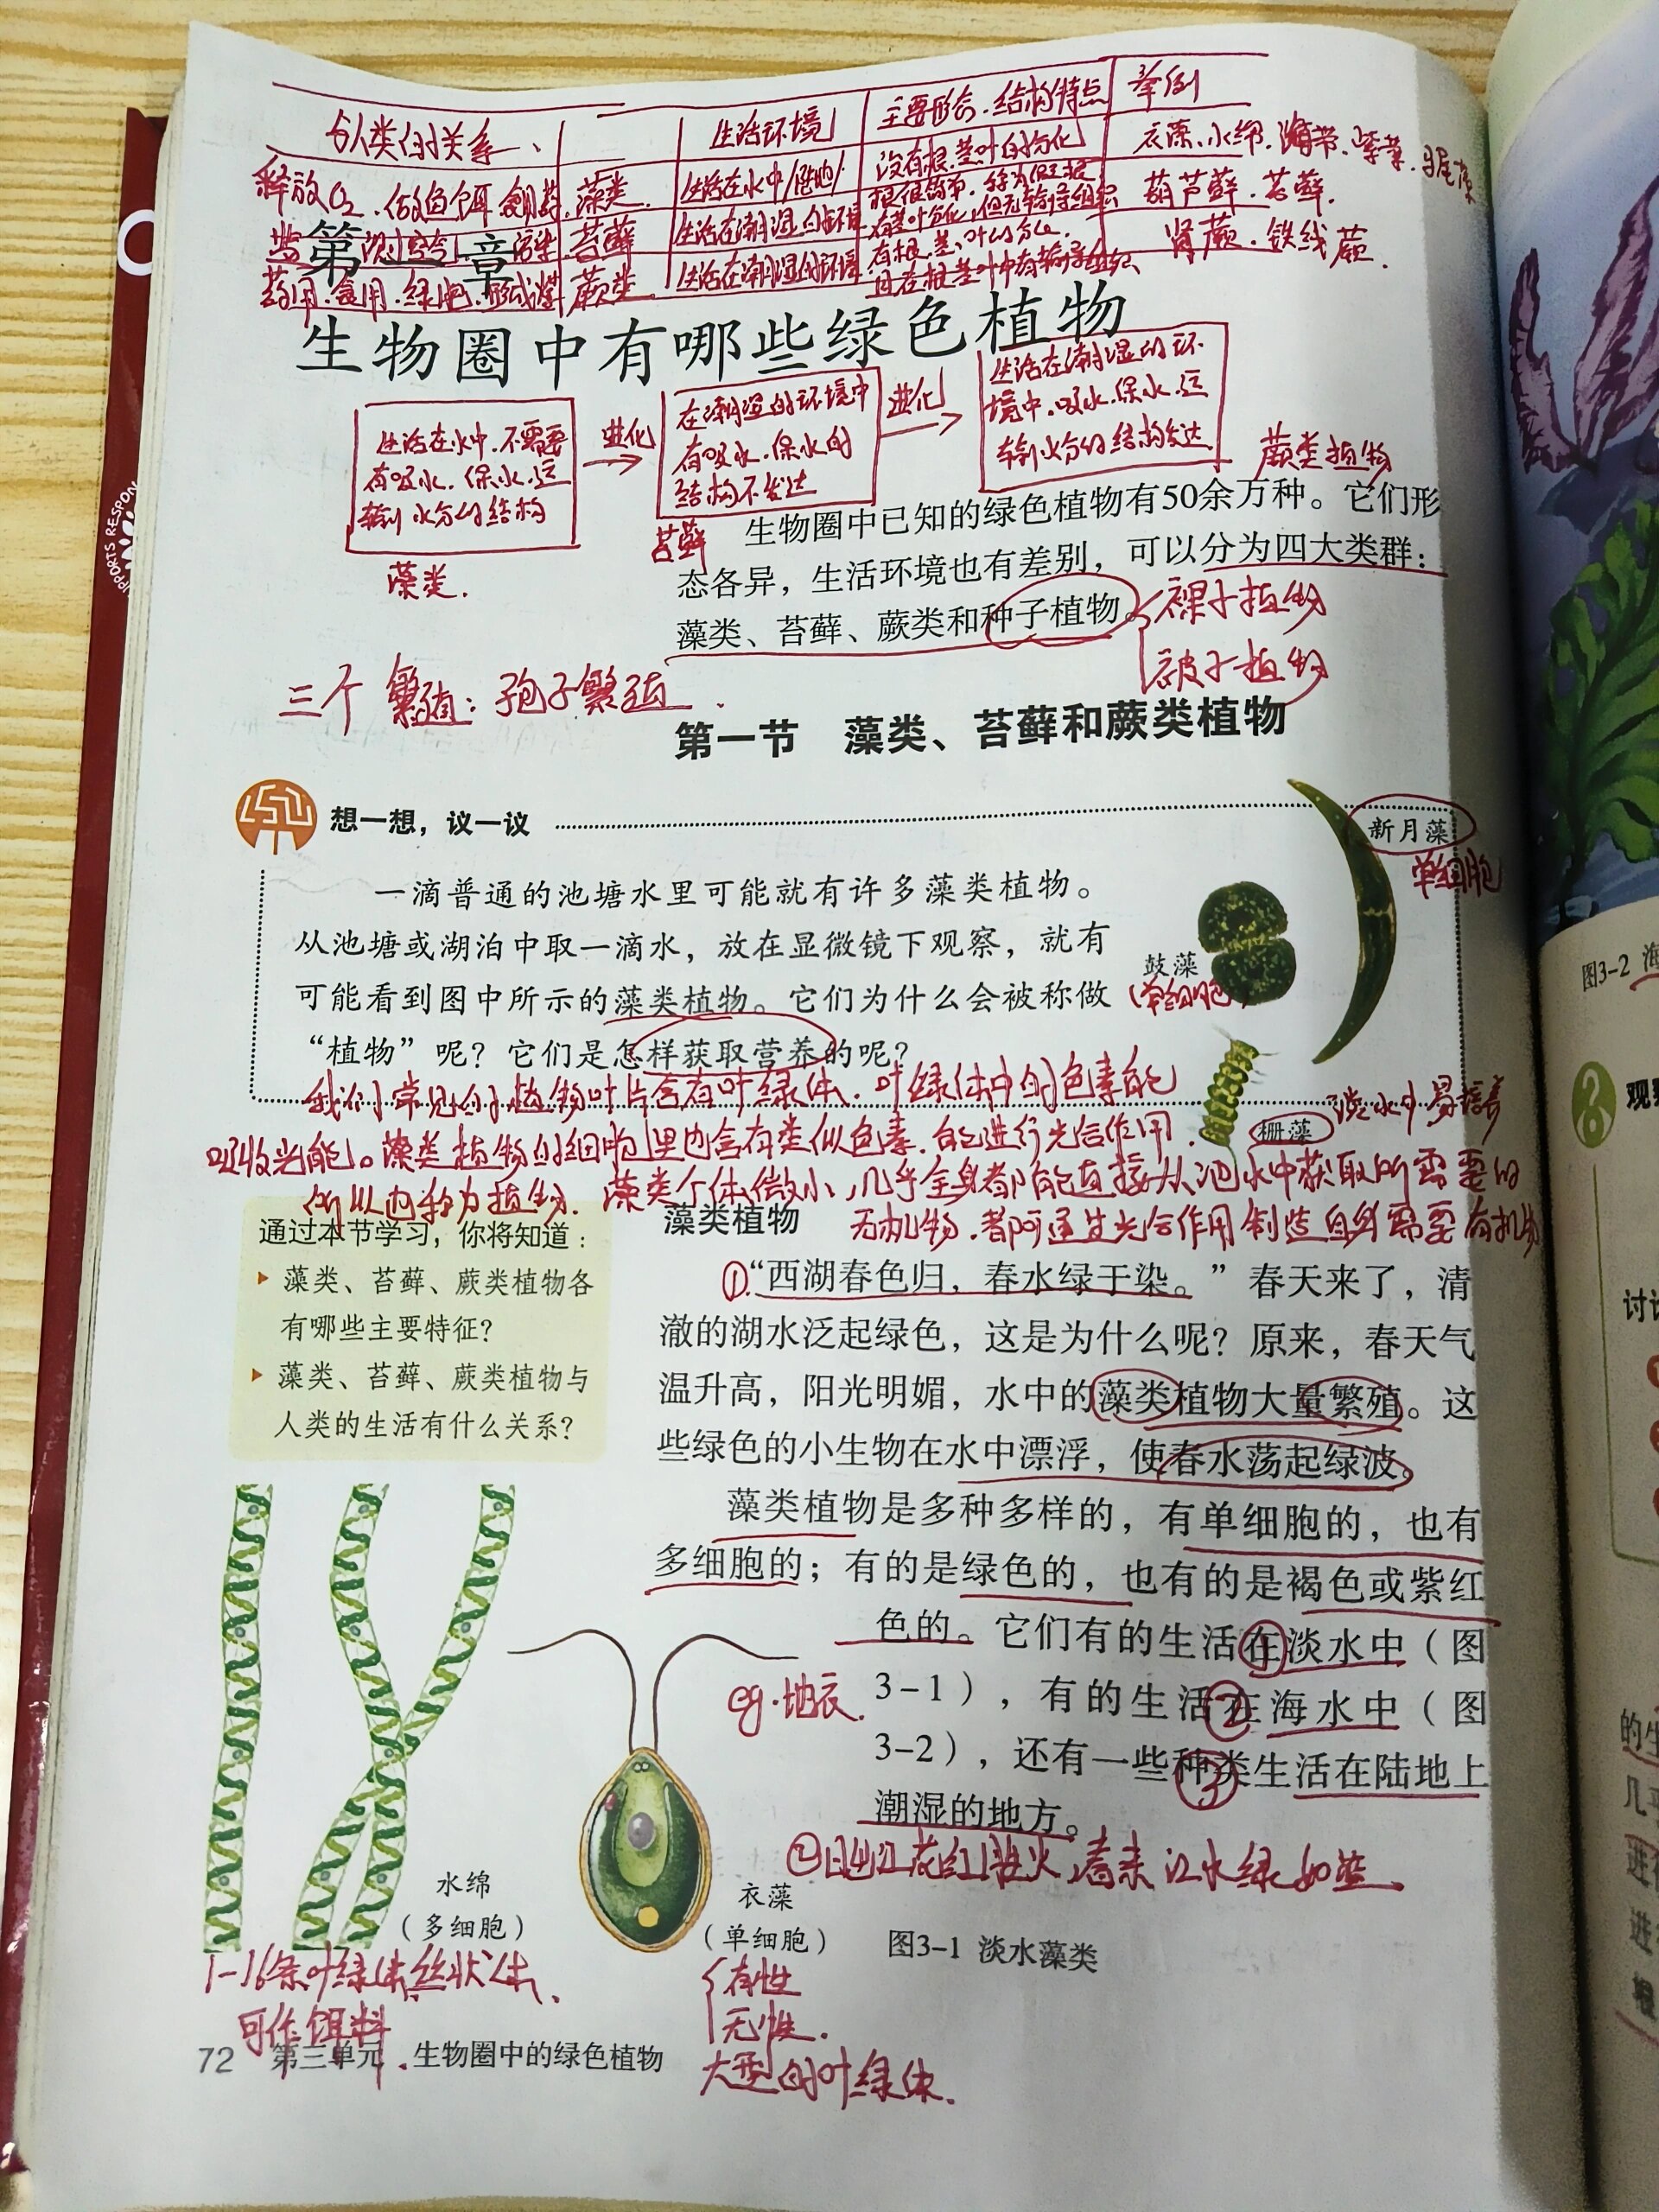 与人类的关系、 生活环境 主要形态.结构特点 举例
释放O₂.做鱼饵 食用.药 藻类. 生活在水中/陆地/ 没有根.茎.叶的分化 衣藻.水绵.海带.紫菜.马尾藻
监 空气 污染 苔藓 生活在潮湿的环境 根很简单.称为假根 有茎叶分化,但无输导组织 葫芦藓.苔藓.
药用.食用.绿肥.形成煤 蕨类. 生活在潮湿的环境 有根.茎.叶的分化. 且在根茎叶中有输导组织 肾蕨.铁线蕨.
第一章
生物圈中有哪些绿色植物
生活在水中.不需要
有吸水.保水.运
输水分的结构
藻类.
进化
在潮湿的环境中
有吸水.保水的
结构不发达
苔藓
进化
生活在潮湿的环
境中.吸水.保水.运
输水分的结构发达
蕨类植物
生物圈中已知的绿色植物有50余万种。它们形
态各异，生活环境也有差别，可以分为四大类群：
藻类、苔藓、蕨类和种子植物。
裸子植物
被子植物
三个 繁殖：孢子繁殖.
第一节 藻类、苔藓和蕨类植物
想一想，议一议
新月藻
单细胞
一滴普通的池塘水里可能就有许多藻类植物。
从池塘或湖泊中取一滴水，放在显微镜下观察，就有
可能看到图中所示的藻类植物。它们为什么会被称做
“植物”呢？它们是怎样获取营养的呢？
鼓藻
(单细胞)
栅藻
淡水中易培养
我们常见的植物叶片含有叶绿体.叶绿体中的色素能
吸收光能。藻类植物的细胞里也含有类似色素.能进行光合作用.
所以也称为植物. 藻类个体微小,几乎全身都能直接从池水中获取所需要的
无机物.都可通过光合作用制造自身需要有机物
通过本节学习，你将知道：
藻类、苔藓、蕨类植物各
有哪些主要特征？
藻类、苔藓、蕨类植物与
人类的生活有什么关系？
藻类植物
①“西湖春色归，春水绿于染。”春天来了，清
澈的湖水泛起绿色，这是为什么呢？原来，春天气
温升高，阳光明媚，水中的藻类植物大量繁殖。这
些绿色的小生物在水中漂浮，使春水荡起绿波。
藻类植物是多种多样的，有单细胞的，也有
多细胞的；有的是绿色的，也有的是褐色或紫红
色的。它们有的生活在淡水中（图
3-1），有的生活在海水中（图
3-2），还有一些种类生活在陆地上
潮湿的地方。
①
②
③
eg.地衣.
②日出江花红胜火,春来江水绿如蓝.
水绵
（多细胞）
1-16条叶绿体.丝状体、
可作饵料.
衣藻
（单细胞）
有性
无性.
大型的叶绿体.
图3-1 淡水藻类
72 第三单元 生物圈中的绿色植物
SPORTS RESPON
图3-2 海
观察
讨论
的生
几乎
进行
进
根